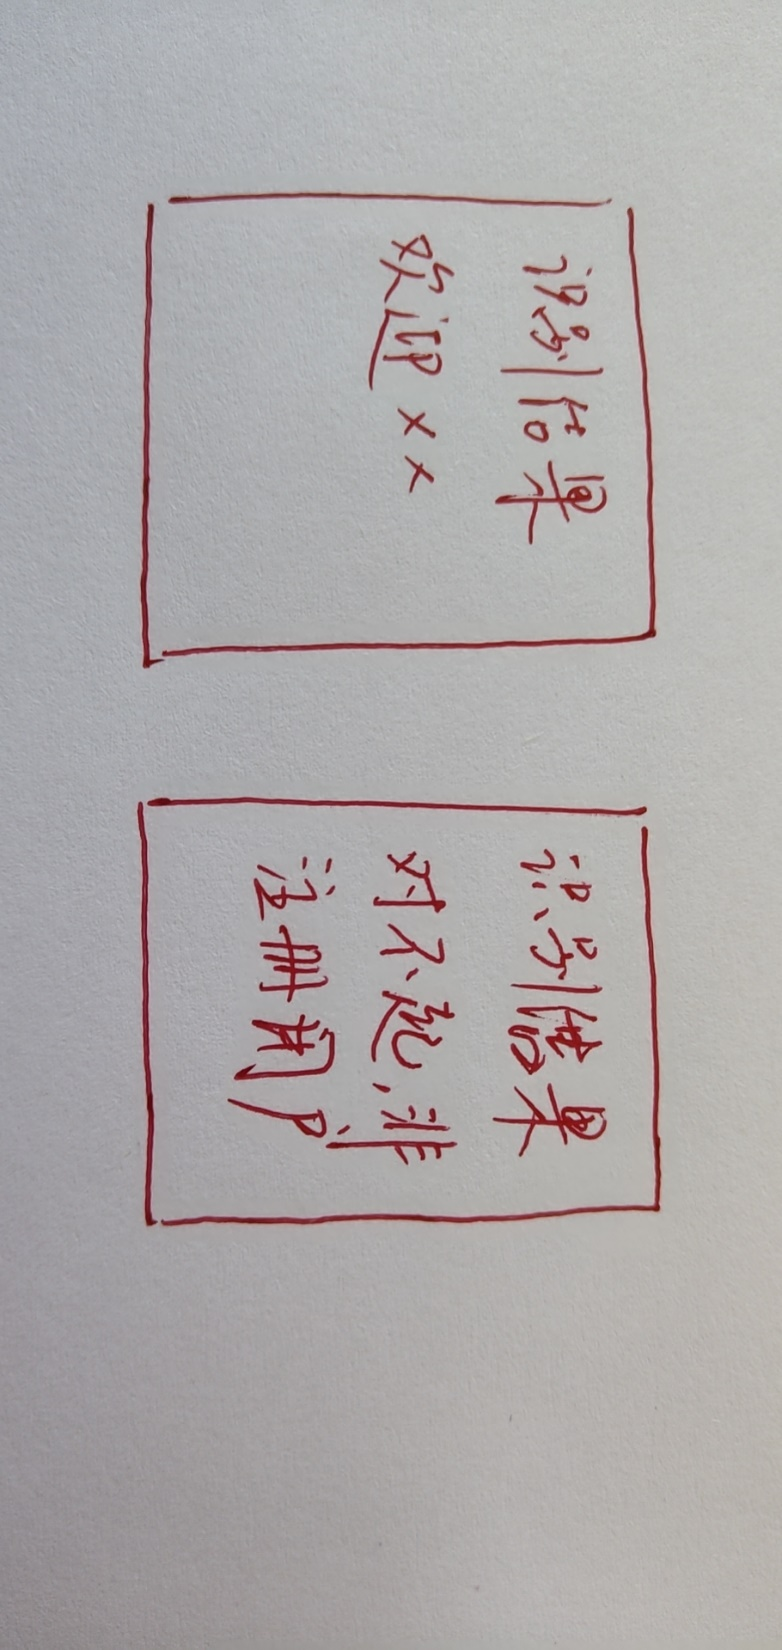 识别结果
欢迎××
识别结果
对不起,非
注册用户